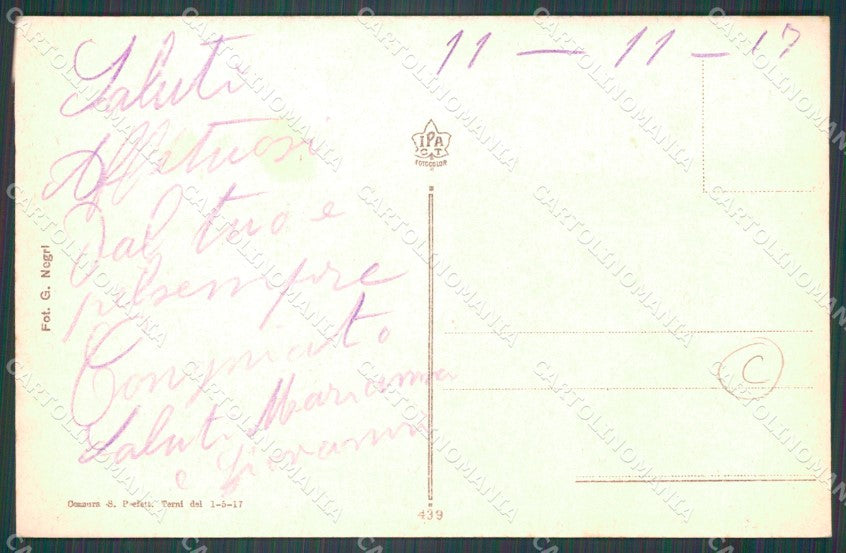 11 - 11 - 17
Saluti
Affituosi
Dal tuo e
pelsempre
Saluti Marianna
e Giovanni
Fot. G. Negri
IPA
C.T.
FOTOCELOR
C
Censura S. Prefett. Terni del 1-5-17
439
CARTOLINOMANIA